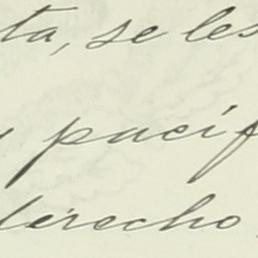 ta, se les
y pacíf
derecho